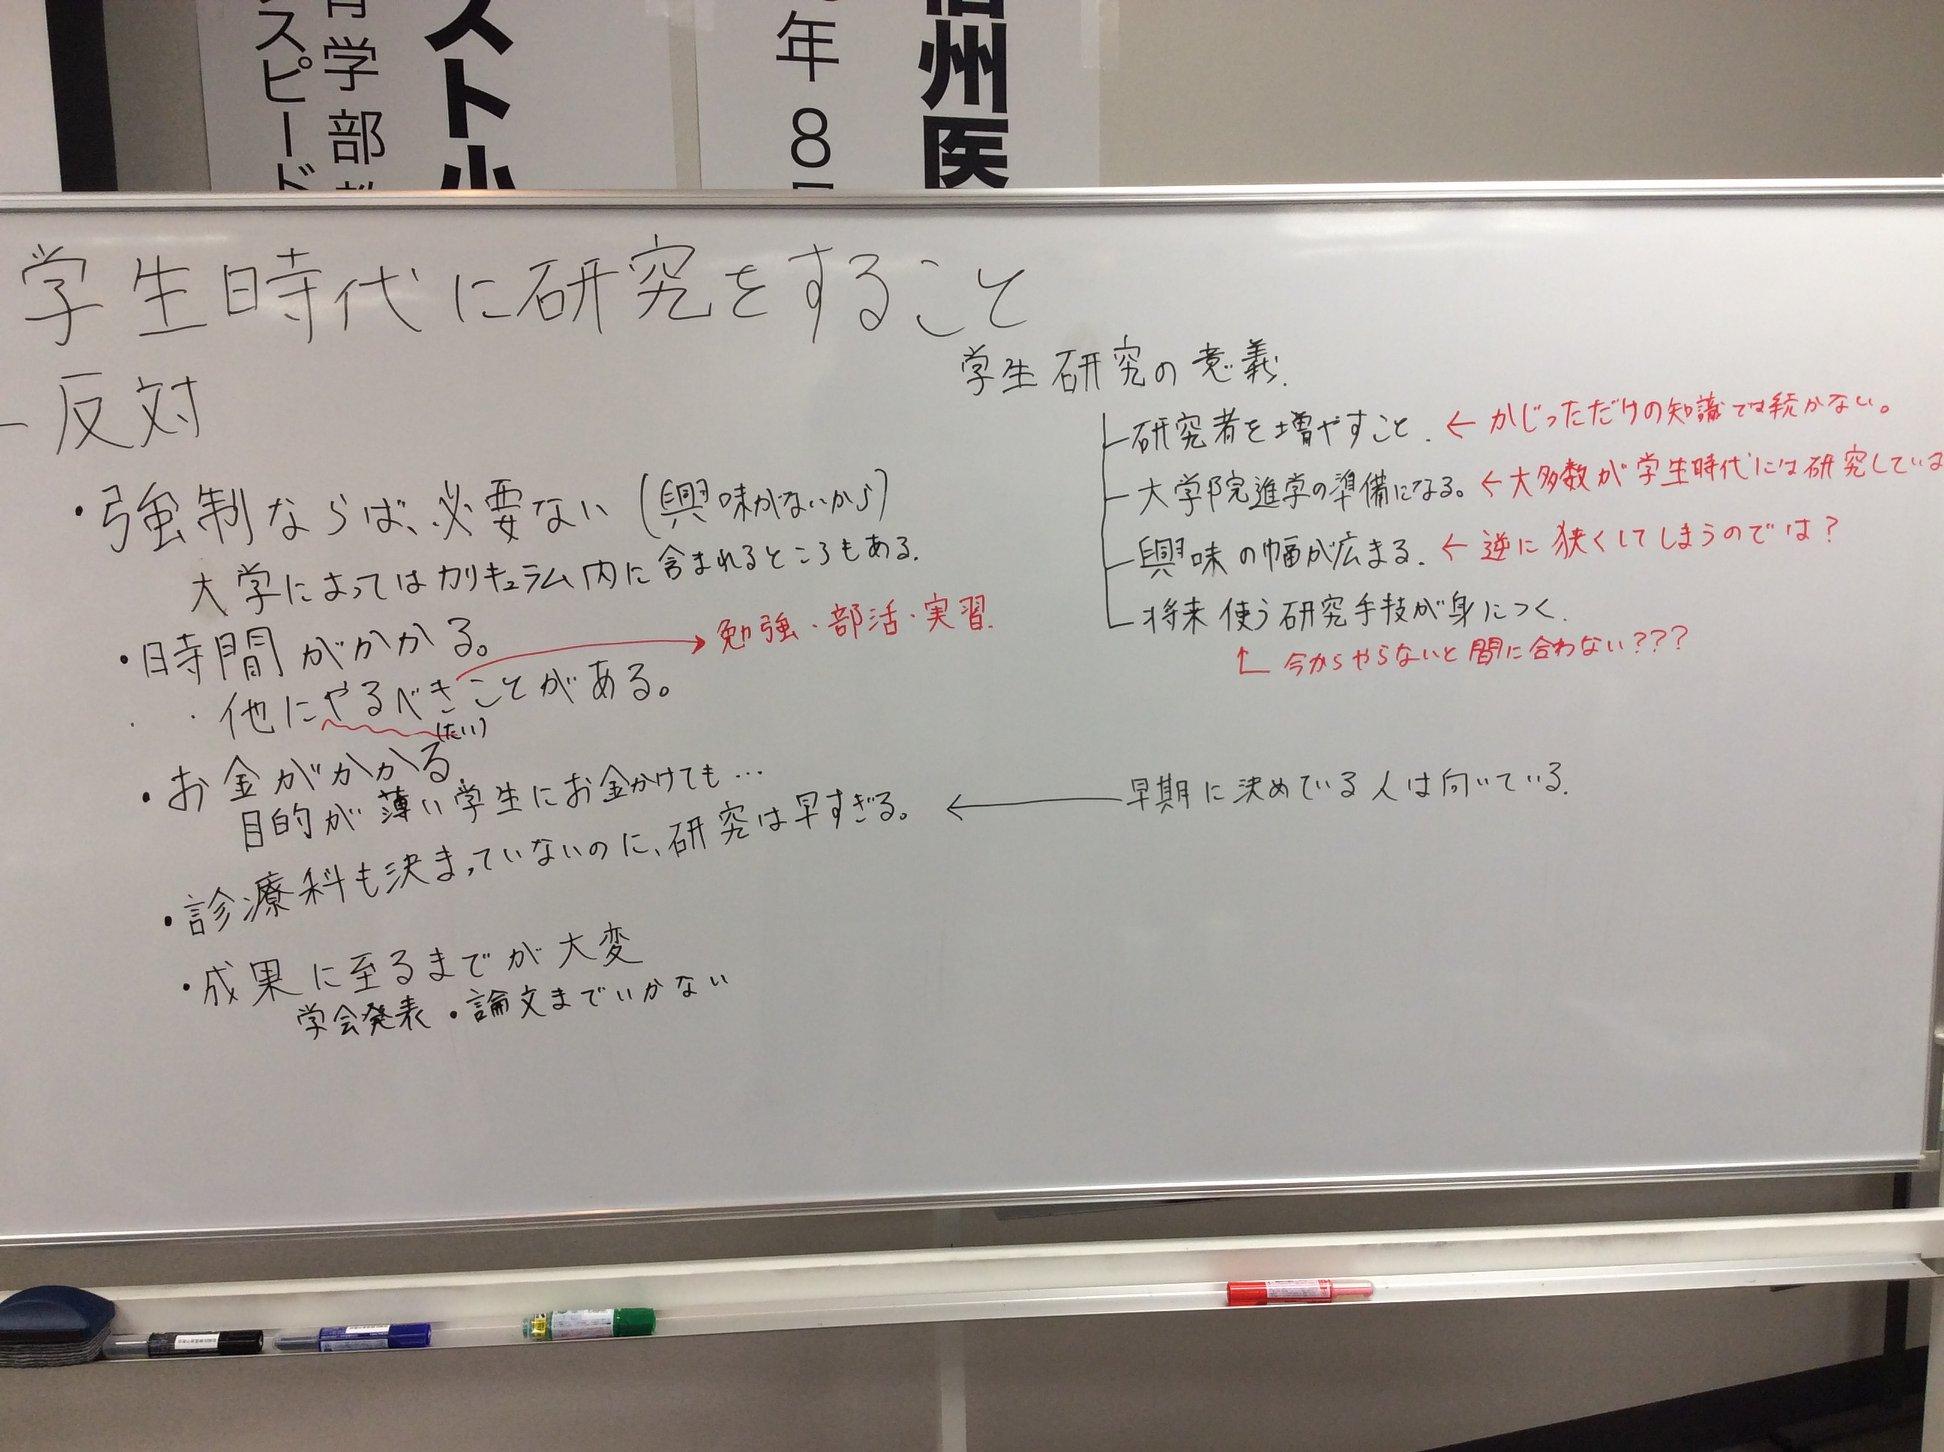 スピード
学部
スト小
年8
信州医
学生時代に研究をすること
- 反対
・強制ならば、必要ない(興味がないから)
大学によってはカリキュラム内に含まれるところもある.
・時間がかかる。
他にやるべきことがある。
(たい)
→ 勉強・部活・実習.
・お金がかかる.
目的が薄い学生にお金かけても…
・診療科も決まっていないのに、研究は早すぎる。
← 早期に決めている人は向いている.
・成果に至るまでが大変
学会発表・論文までいかない
学生研究の意義.
研究者を増やすこと. ← かじっただけの知識では続かない。
大学院進学の準備になる。 ← 大多数が学生時代には研究している
興味の幅が広まる. ← 逆に狭くしてしまうのでは?
将来使う研究手技が身につく.
今からやらないと間に合わない???